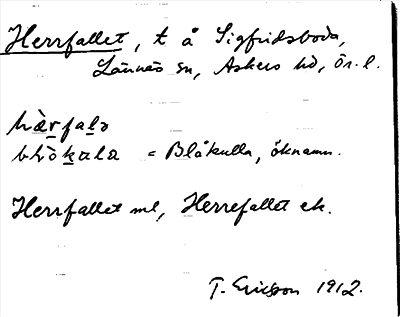 Herrfallet, t å Sigfridsboda,
Lännäs sn, Askers hd, Ör. l.
hærfalə
blòkala = Blåkulla, öknamn.
Herrfallet ml, Herrefallet ek.
T. Ericsson 1912.